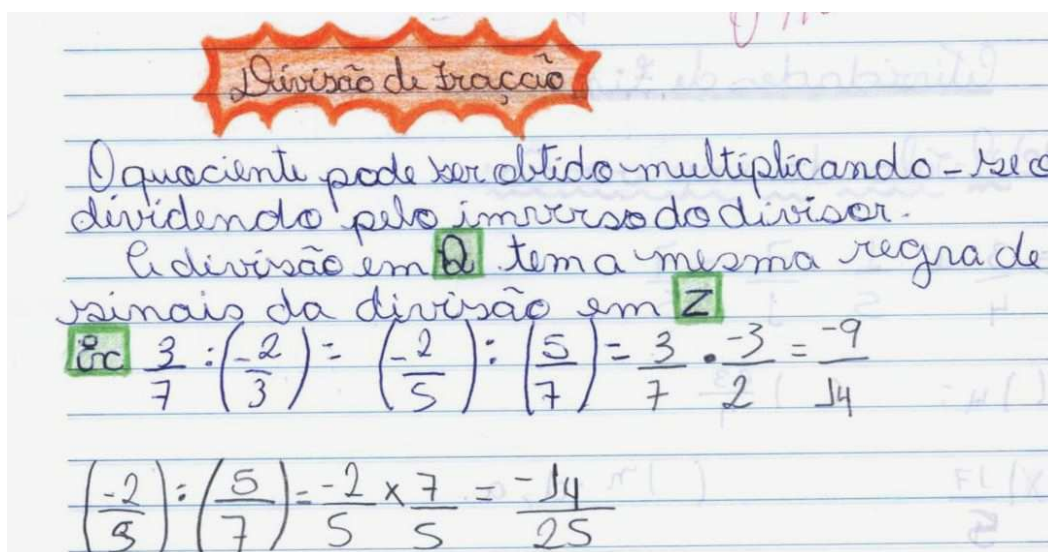 Divisão de Fracção
O quociente pode ser obtido multiplicando-se o
dividendo pelo inverso do divisor.
A divisão em Q tem a mesma regra de
sinais da divisão em Z
Ex 3/7 : (-2/3) = (-2/5) : (5/7) = 3/7 . -3/2 = -9/14
(-2/9) : (5/7) = -2/5 x 7/5 = -14/25